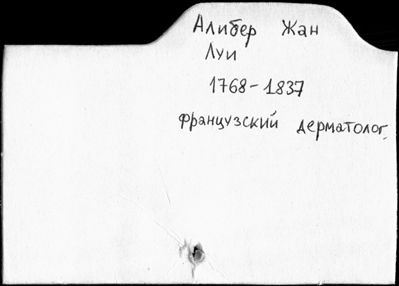 Алибер Жан
Луи
1768-1837
французский дерматолог.